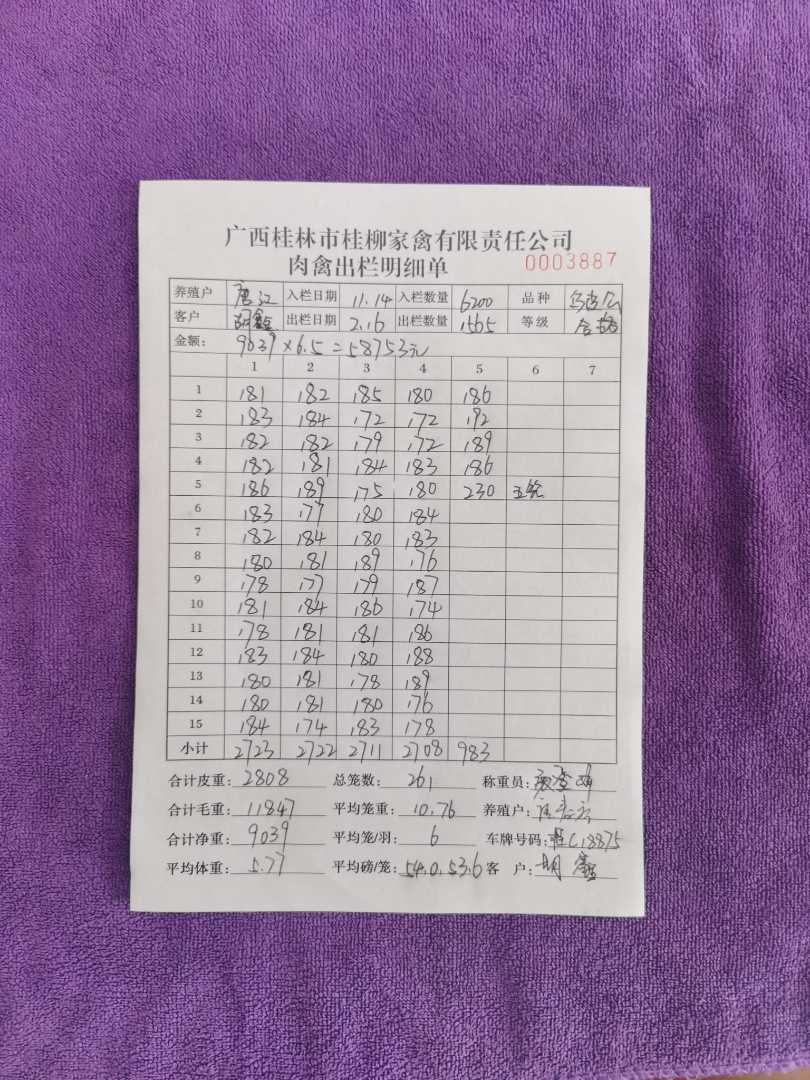 广西桂林市桂柳家禽有限责任公司
肉禽出栏明细单 0003887
养殖户 唐江 入栏日期 11.14 入栏数量 6200 品种
客户 胡鑫 出栏日期 2.16 出栏数量 1565 等级
金额: 9039×6.5=58753元
1 2 3 4 5 6 7
1 181 182 185 180 186
2 183 184 172 172 192
3 182 182 179 172 189
4 182 181 184 183 186
5 186 189 175 180 230 五笼
6 183 177 180 184
7 182 184 180 183
8 180 181 189 176
9 178 177 179 187
10 181 184 186 174
11 178 181 181 186
12 183 184 180 188
13 180 181 178 189
14 180 181 180 176
15 184 174 183 178
小计 2723 2722 2711 2708 983
合计皮重: 2808 总笼数: 261 称重员:
合计毛重: 11847 平均笼重: 10.76 养殖户:
合计净重: 9039 平均笼/羽: 6 车牌号码: 桂C18875
平均体重: 5.77 平均磅/笼: 54.0.53.6 客户: 胡鑫